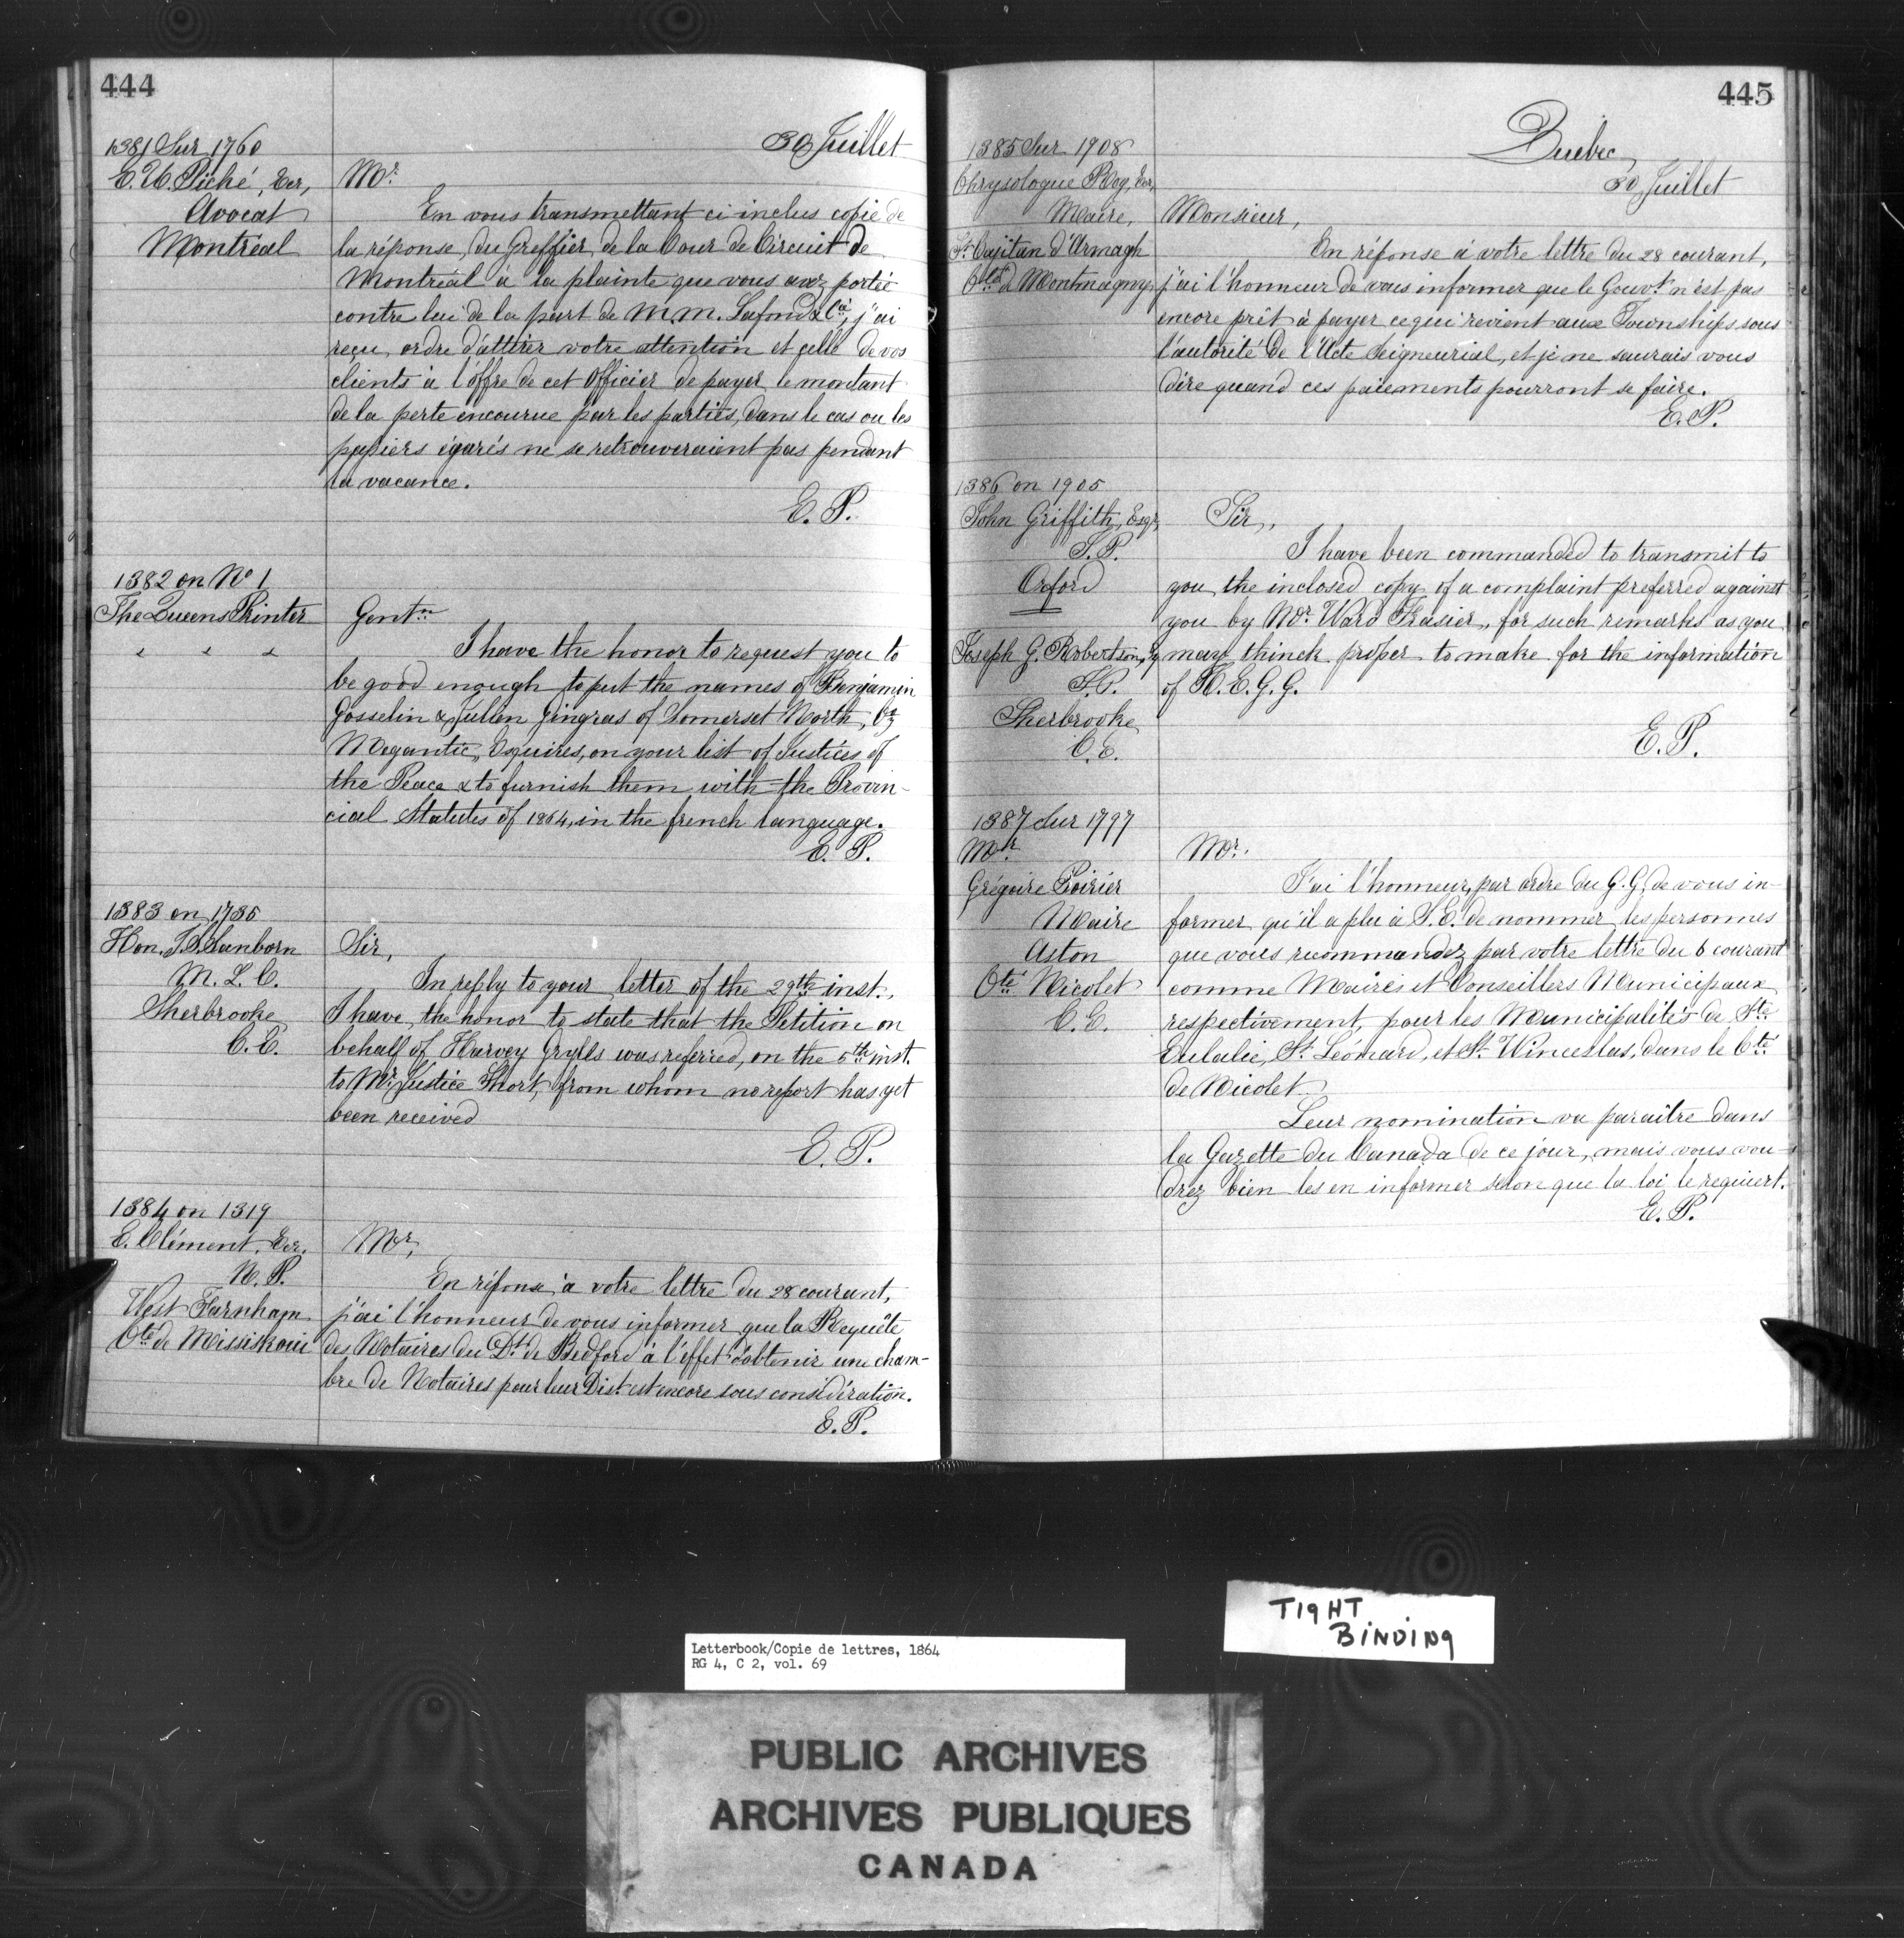 444
30 Juillet
1381 Sur 1760
E. U. Piché, Ecr,
Avocat
Montréal
Mr
En vous transmettant ci-inclus copie de
la réponse du Greffier de la Cour de Circuit de
Montréal à la plainte que vous avez portée
contre lui de la part de M.M. Lafond & Ca, j'ai
reçu ordre d'attirer votre attention et celle de vos
clients à l'offre de cet Officier de payer le montant
de la perte encourue par les parties, dans le cas ou les
papiers égarés ne se retrouveraient pas pendant
la vacance.
E. P.
1382 on No 1
The Queens Printer
Gentn
I have the honor to request you to
be good enough to put the names of Benjamin
Gosselin & Jullen Gingras of Somerset North, Co
Megantic, Esquires, on your list of Justices of
the Peace & to furnish them with the Provin-
cial Statutes of 1864, in the french language.
E. P.
1383 on 1735
Hon. J. S. Sanborn
M. L. C.
Sherbrooke
C. E.
Sir,
In reply to your letter of the 29th inst.,
I have the honor to state that the Petition on
behalf of Harvey Grylls was referred, on the 5th inst.
to Mr Justice Short, from whom no report has yet
been received
E. P.
1384 on 1319
E. Clément, Ecr.
N. P.
West Farnham
Cté de Missiskoui
Mr,
En réponse à votre lettre du 28 courant,
j'ai l'honneur de vous informer que la Requête
des Notaires du Dt de Bedford à l'effet d'obtenir une cham-
bre de Notaires pour leur Dist. est encore sous considération.
E. P.
445
Québec,
30 Juillet
1385 Sur 1908
Chrysologue Roy, Ecr,
Maire,
St Cajitan d'Armagh
Cté de Montmagny
Monsieur,
En réponse à votre lettre du 28 courant,
j'ai l'honneur de vous informer que le Gouvt n'est pas
encore prêt à payer ce qui revient aux Townships sous
l'autorité de l'Acte Seigneurial, et je ne saurais vous
dire quand ces paiements pourront se faire.
E. P.
1386 on 1905
John Griffith, Esqr,
J. P.
Orford
Joseph G. Robertson,
J. P.
Sherbrooke
C. E.
Sir,
I have been commanded to transmit to
you the inclosed copy of a complaint preferred against
you by Mr Ward Frasier, for such remarks as you
may thinck proper to make for the information
of H. E. G. G.
E. P.
1387 Sur 1797
Mr
Grégoire Poirier
Maire
Aston
Cté Nicolet
C. E.
Mr.
J'ai l'honneur, par ordre du G. G., de vous in-
former qu'il a plu à S. E. de nommer les personnes
que vous recommandez par votre lettre du 6 courant
comme Maires et Conseillers Municipaux
respectivement, pour les Municipalités de Ste
Eulalie, St Léonard, et St Winceslas, dans le Cté
de Nicolet
Leur nomination va paraitre dans
la Gazette du Canada de ce jour, mais vous vou-
drez bien les en informer selon que la loi le requiert.
E. P.
TIGHT
BINDING
Letterbook/Copie de lettres, 1864
RG 4, C 2, vol. 69
PUBLIC ARCHIVES
ARCHIVES PUBLIQUES
CANADA